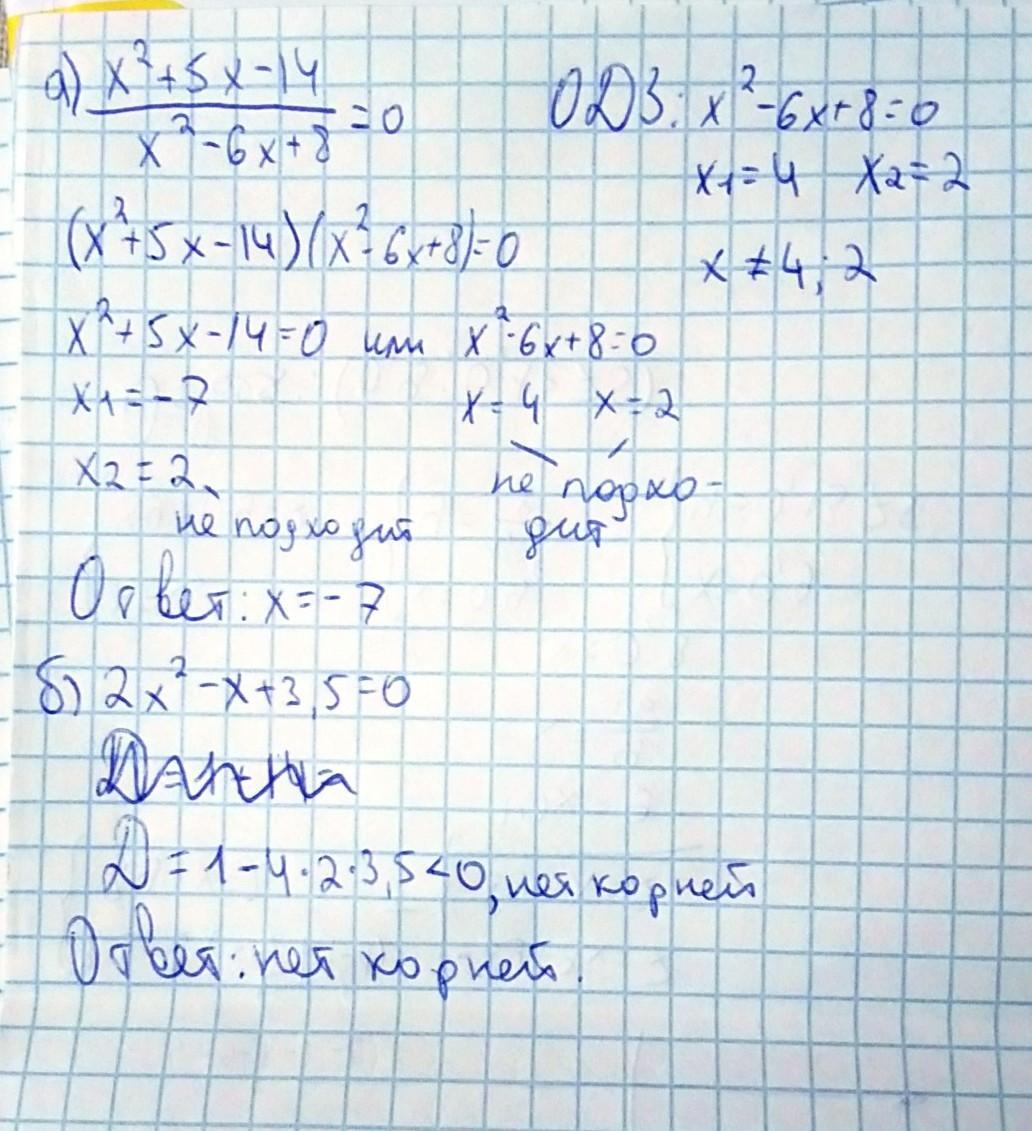 а) x²+5x-14 / x²-6x+8 = 0
ОДЗ: x²-6x+8=0
x1=4 x2=2
x≠4; 2
(x²+5x-14)(x²-6x+8)=0
x²+5x-14=0 или x²-6x+8=0
x1=-7 x=4 x=2
x2=2
не подхо-
не подходит дит
Ответ: x=-7
б) 2x²-x+3,5=0
D=1-4·2·3,5<0, нет корней
Ответ: нет корней.